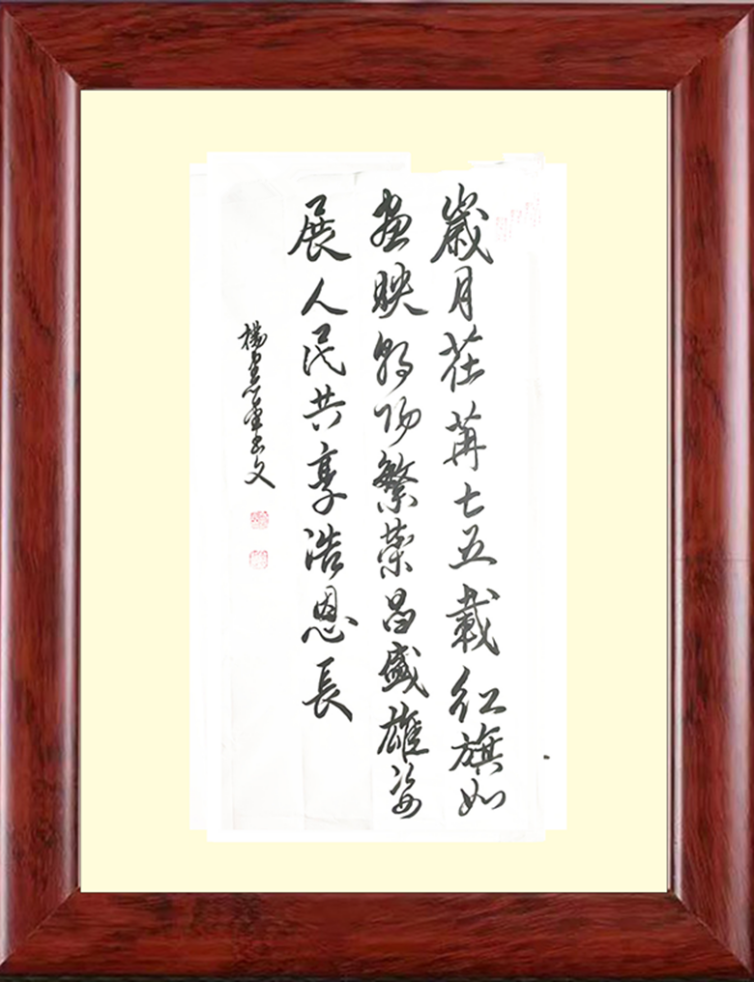 歲月荏苒七五載紅旗如
畫映朝陽繁榮昌盛雄姿
展人民共享浩恩長
楊